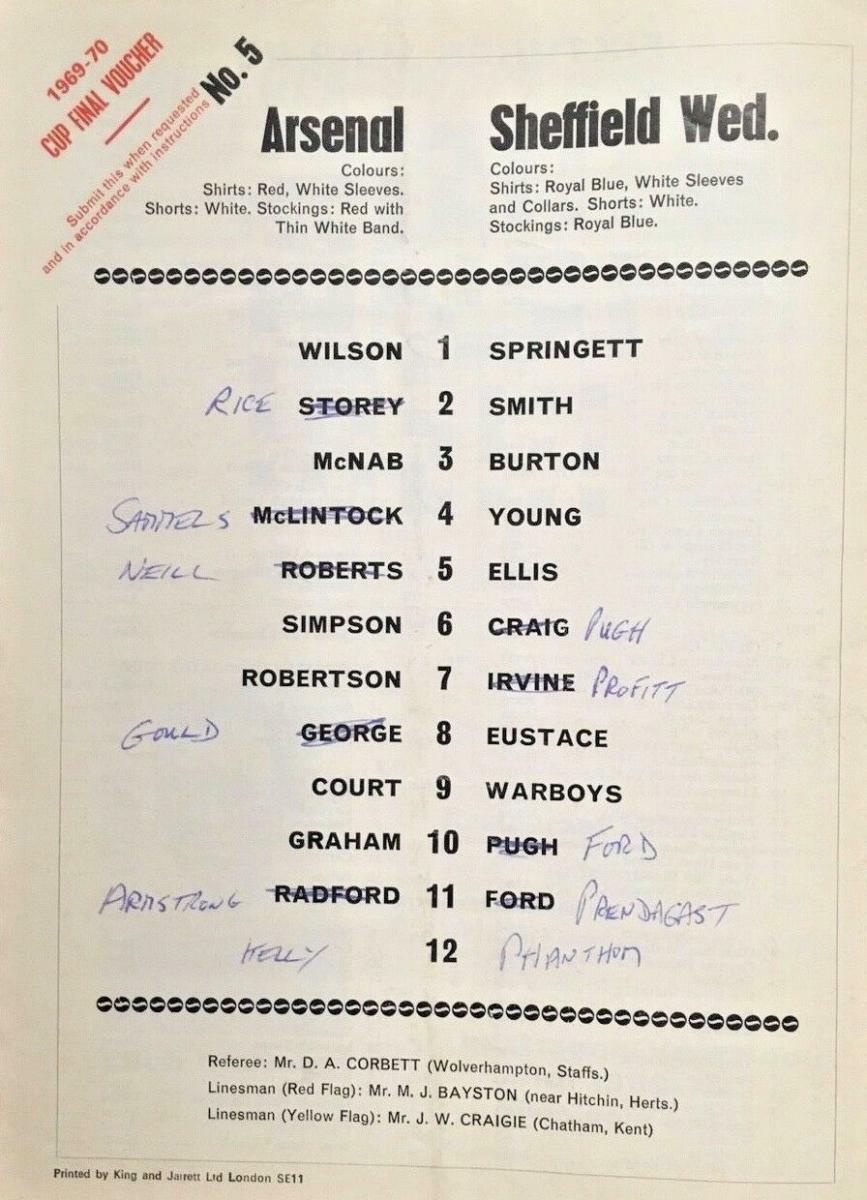 1969-70
CUP FINAL VOUCHER
No. 5
Submit this when requested
and in accordance with instructions
Arsenal
Colours:
Shirts: Red, White Sleeves.
Shorts: White. Stockings: Red with
Thin White Band.
Sheffield Wed.
Colours:
Shirts: Royal Blue, White Sleeves
and Collars. Shorts: White.
Stockings: Royal Blue.
WILSON 1 SPRINGETT
RICE STOREY 2 SMITH
McNAB 3 BURTON
SAMMELS McLINTOCK 4 YOUNG
NEILL ROBERTS 5 ELLIS
SIMPSON 6 CRAIG PUGH
ROBERTSON 7 IRVINE PROFITT
GOULD GEORGE 8 EUSTACE
COURT 9 WARBOYS
GRAHAM 10 PUGH FORD
ARMSTRONG RADFORD 11 FORD PRENDAGAST
KELLY 12 PHANTHOM
Referee: Mr. D. A. CORBETT (Wolverhampton, Staffs.)
Linesman (Red Flag): Mr. M. J. BAYSTON (near Hitchin, Herts.)
Linesman (Yellow Flag): Mr. J. W. CRAIGIE (Chatham, Kent)
Printed by King and Jarrett Ltd London SE11